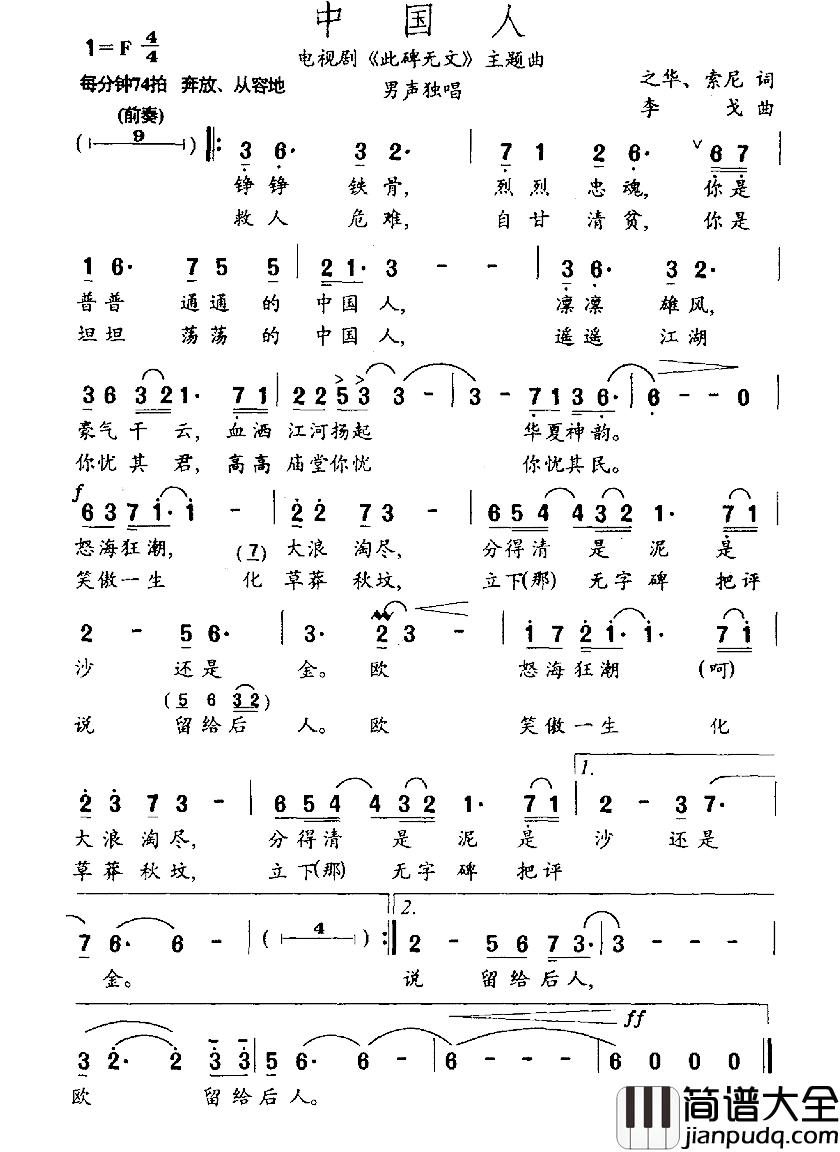 中国人
1=F 4/4
电视剧《此碑无文》主题曲
每分钟74拍 奔放、从容地
男声独唱
之华、索尼 词
李戈 曲
(前奏)
( 9 ) ‖: 3 6· 3 2· | 7 1 2 6· ∨ 6 7 |
铮铮 铁骨, 烈烈 忠魂, 你是
救人 危难, 自甘 清贫, 你是
1 6· 7 5 5 | 2 1· 3 - - | 3 6· 3 2· |
普普 通通的 中国 人, 凛凛 雄风,
坦坦 荡荡的 中国 人, 遥遥 江湖
3 6 3 2 1· 7 1 | 2 2 5 3 3 - | 3 - 7 1 3 6· | 6 - - 0 |
豪气干云, 血洒 江河扬起 华夏神韵。
你忧其君, 高高 庙堂你忧 你忧其民。
f
6 3 7 1· 1 - | 2 2 7 3 - | 6 5 4 4 3 2 1· 7 1 |
怒海狂潮, (7) 大浪 淘尽, 分得清 是 泥 是
笑傲一生 化 草莽 秋坟, 立下(那) 无字 碑 把评
2 - 5 6· | 3· 2 3 - | 1 7 2 1· 1· 7 1 |
沙 还是 金。 欧 怒海狂潮 (呵)
(5 6 3 2)
说 留给后 人。 欧 笑傲一生 化
2 3 7 3 - | 6 5 4 4 3 2 1· 7 1 | 1. 2 - 3 7· |
大浪 淘尽, 分得清 是 泥 是 沙 还是
草莽 秋坟, 立下(那) 无字 碑 把评
7 6· 6 - | ( 4 ) :‖ 2. 2 - 5 6 7 3· | 3 - - - |
金。 说 留给后人,
ff
3 2· 2 3 3 | 5 6· 6 - | 6 - - - | 6 0 0 0 ‖
欧 留给后人。
简谱大全
jianpudq.com